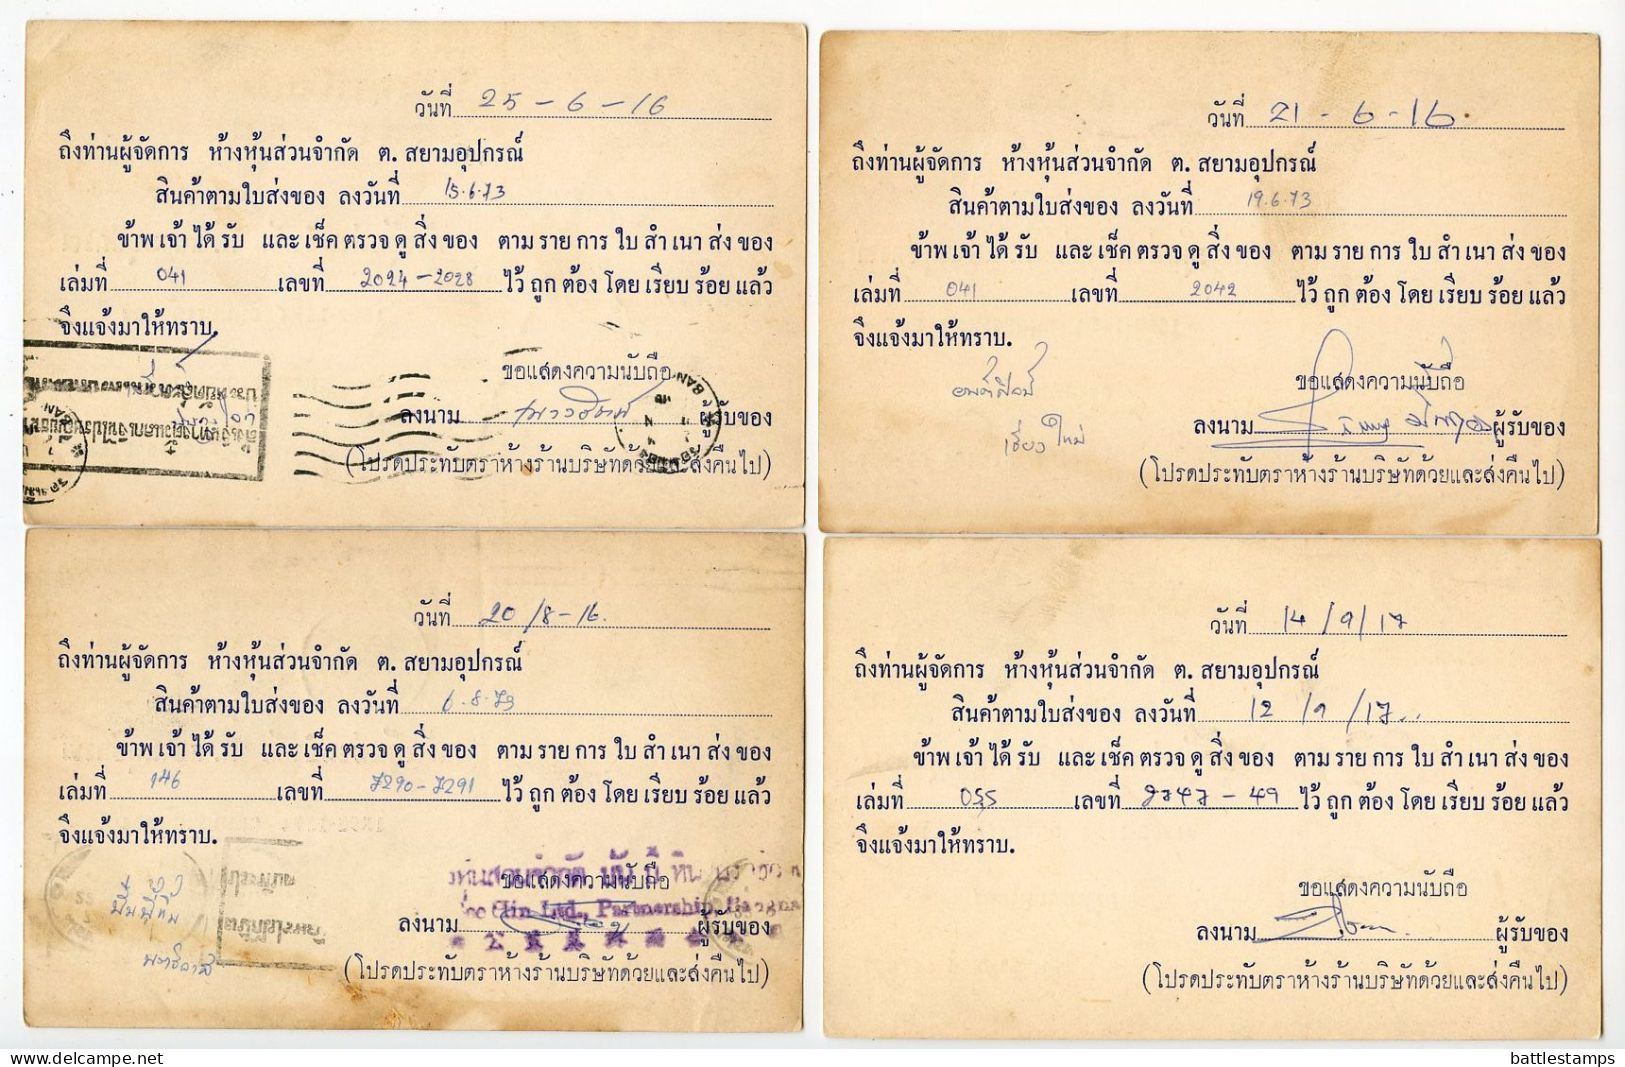 วันที่ 25-6-16
ถึงท่านผู้จัดการ ห้างหุ้นส่วนจำกัด ต. สยามอุปกรณ์
สินค้าตามใบส่งของ ลงวันที่ 15.6.73
ข้าพเจ้าได้รับ และเช็คตรวจดูสิ่งของ ตามรายการใบสำเนาส่งของ
เล่มที่ 041 เลขที่ 2024-2028 ไว้ถูกต้องโดยเรียบร้อยแล้ว
จึงแจ้งมาให้ทราบ.
ขอแสดงความนับถือ
ลงนาม ผู้รับของ
(โปรดประทับตราห้างร้านบริษัทด้วยและส่งคืนไป)
วันที่ 21-6-16
ถึงท่านผู้จัดการ ห้างหุ้นส่วนจำกัด ต. สยามอุปกรณ์
สินค้าตามใบส่งของ ลงวันที่ 19.6.73
ข้าพเจ้าได้รับ และเช็คตรวจดูสิ่งของ ตามรายการใบสำเนาส่งของ
เล่มที่ 041 เลขที่ 2042 ไว้ถูกต้องโดยเรียบร้อยแล้ว
จึงแจ้งมาให้ทราบ.
ขอแสดงความนับถือ
เชียงใหม่
ลงนาม ผู้รับของ
(โปรดประทับตราห้างร้านบริษัทด้วยและส่งคืนไป)
วันที่ 20/8-16.
ถึงท่านผู้จัดการ ห้างหุ้นส่วนจำกัด ต. สยามอุปกรณ์
สินค้าตามใบส่งของ ลงวันที่ 6.8.73
ข้าพเจ้าได้รับ และเช็คตรวจดูสิ่งของ ตามรายการใบสำเนาส่งของ
เล่มที่ 146 เลขที่ 7290-7291 ไว้ถูกต้องโดยเรียบร้อยแล้ว
จึงแจ้งมาให้ทราบ.
ขอแสดงความนับถือ
Ltd., Partnership,
ลงนาม ผู้รับของ
(โปรดประทับตราห้างร้านบริษัทด้วยและส่งคืนไป)
วันที่ 14/9/17
ถึงท่านผู้จัดการ ห้างหุ้นส่วนจำกัด ต. สยามอุปกรณ์
สินค้าตามใบส่งของ ลงวันที่ 12/9/17
ข้าพเจ้าได้รับ และเช็คตรวจดูสิ่งของ ตามรายการใบสำเนาส่งของ
เล่มที่ 055 เลขที่ 2747-49 ไว้ถูกต้องโดยเรียบร้อยแล้ว
จึงแจ้งมาให้ทราบ.
ขอแสดงความนับถือ
ลงนาม ผู้รับของ
(โปรดประทับตราห้างร้านบริษัทด้วยและส่งคืนไป)
www.delcampe.net
battlestamps